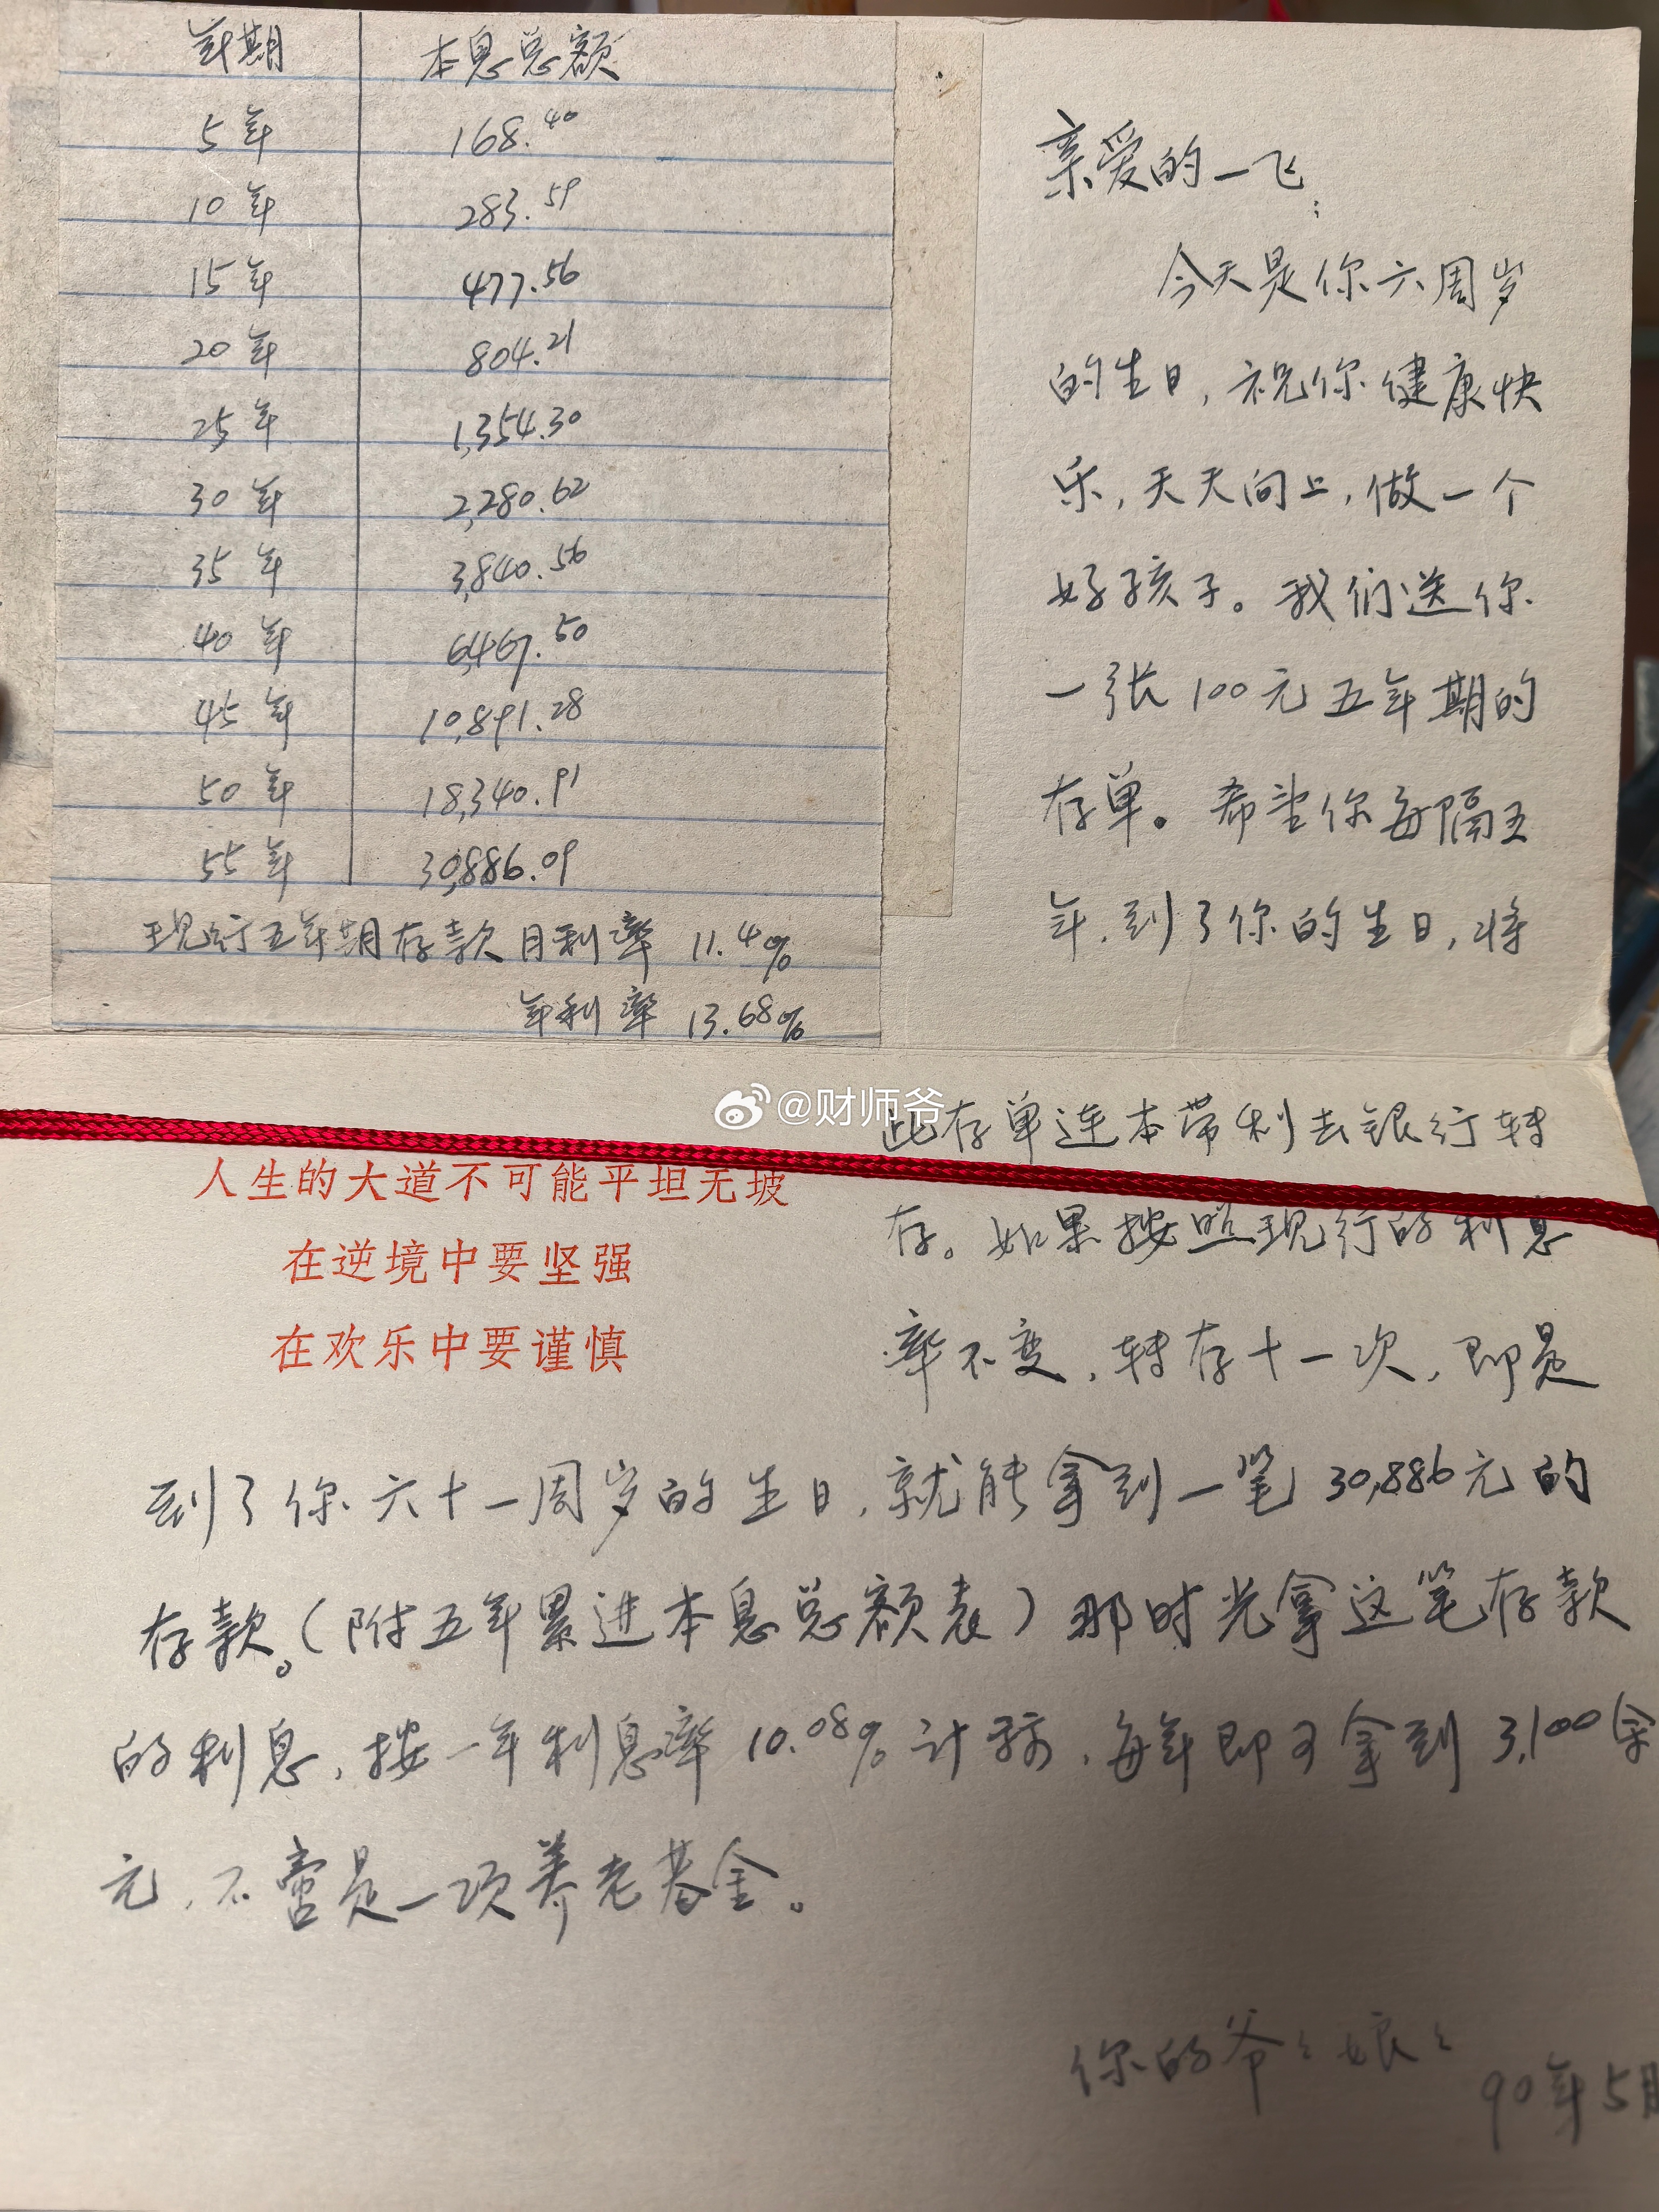 年期 本息总额
5年 168.40
10年 283.59
15年 477.56
20年 804.21
25年 1,354.30
30年 2,280.62
35年 3,840.56
40年 6,467.50
45年 10,891.28
50年 18,340.91
55年 30,886.09
现行五年期存款月利率 11.4‰
年利率 13.68%
亲爱的一飞:
今天是你六周岁
的生日,祝你健康快
乐,天天向上,做一个
好孩子。我们送你
一张100元五年期的
存单。希望你每隔五
年,到了你的生日,将
@财师爷
此存单连本带利去银行转
存。如果按照现行的利息
率不变,转存十一次,即是
人生的大道不可能平坦无坡
在逆境中要坚强
在欢乐中要谨慎
到了你六十一周岁的生日,就能拿到一笔30,886元的
存款。(附五年累进本息总额表)那时光拿这笔存款
的利息,按一年利息率10.08%计算,每年即可拿到3,100余
元,不啻是一项养老基金。
你的爷々娘々
90年5月